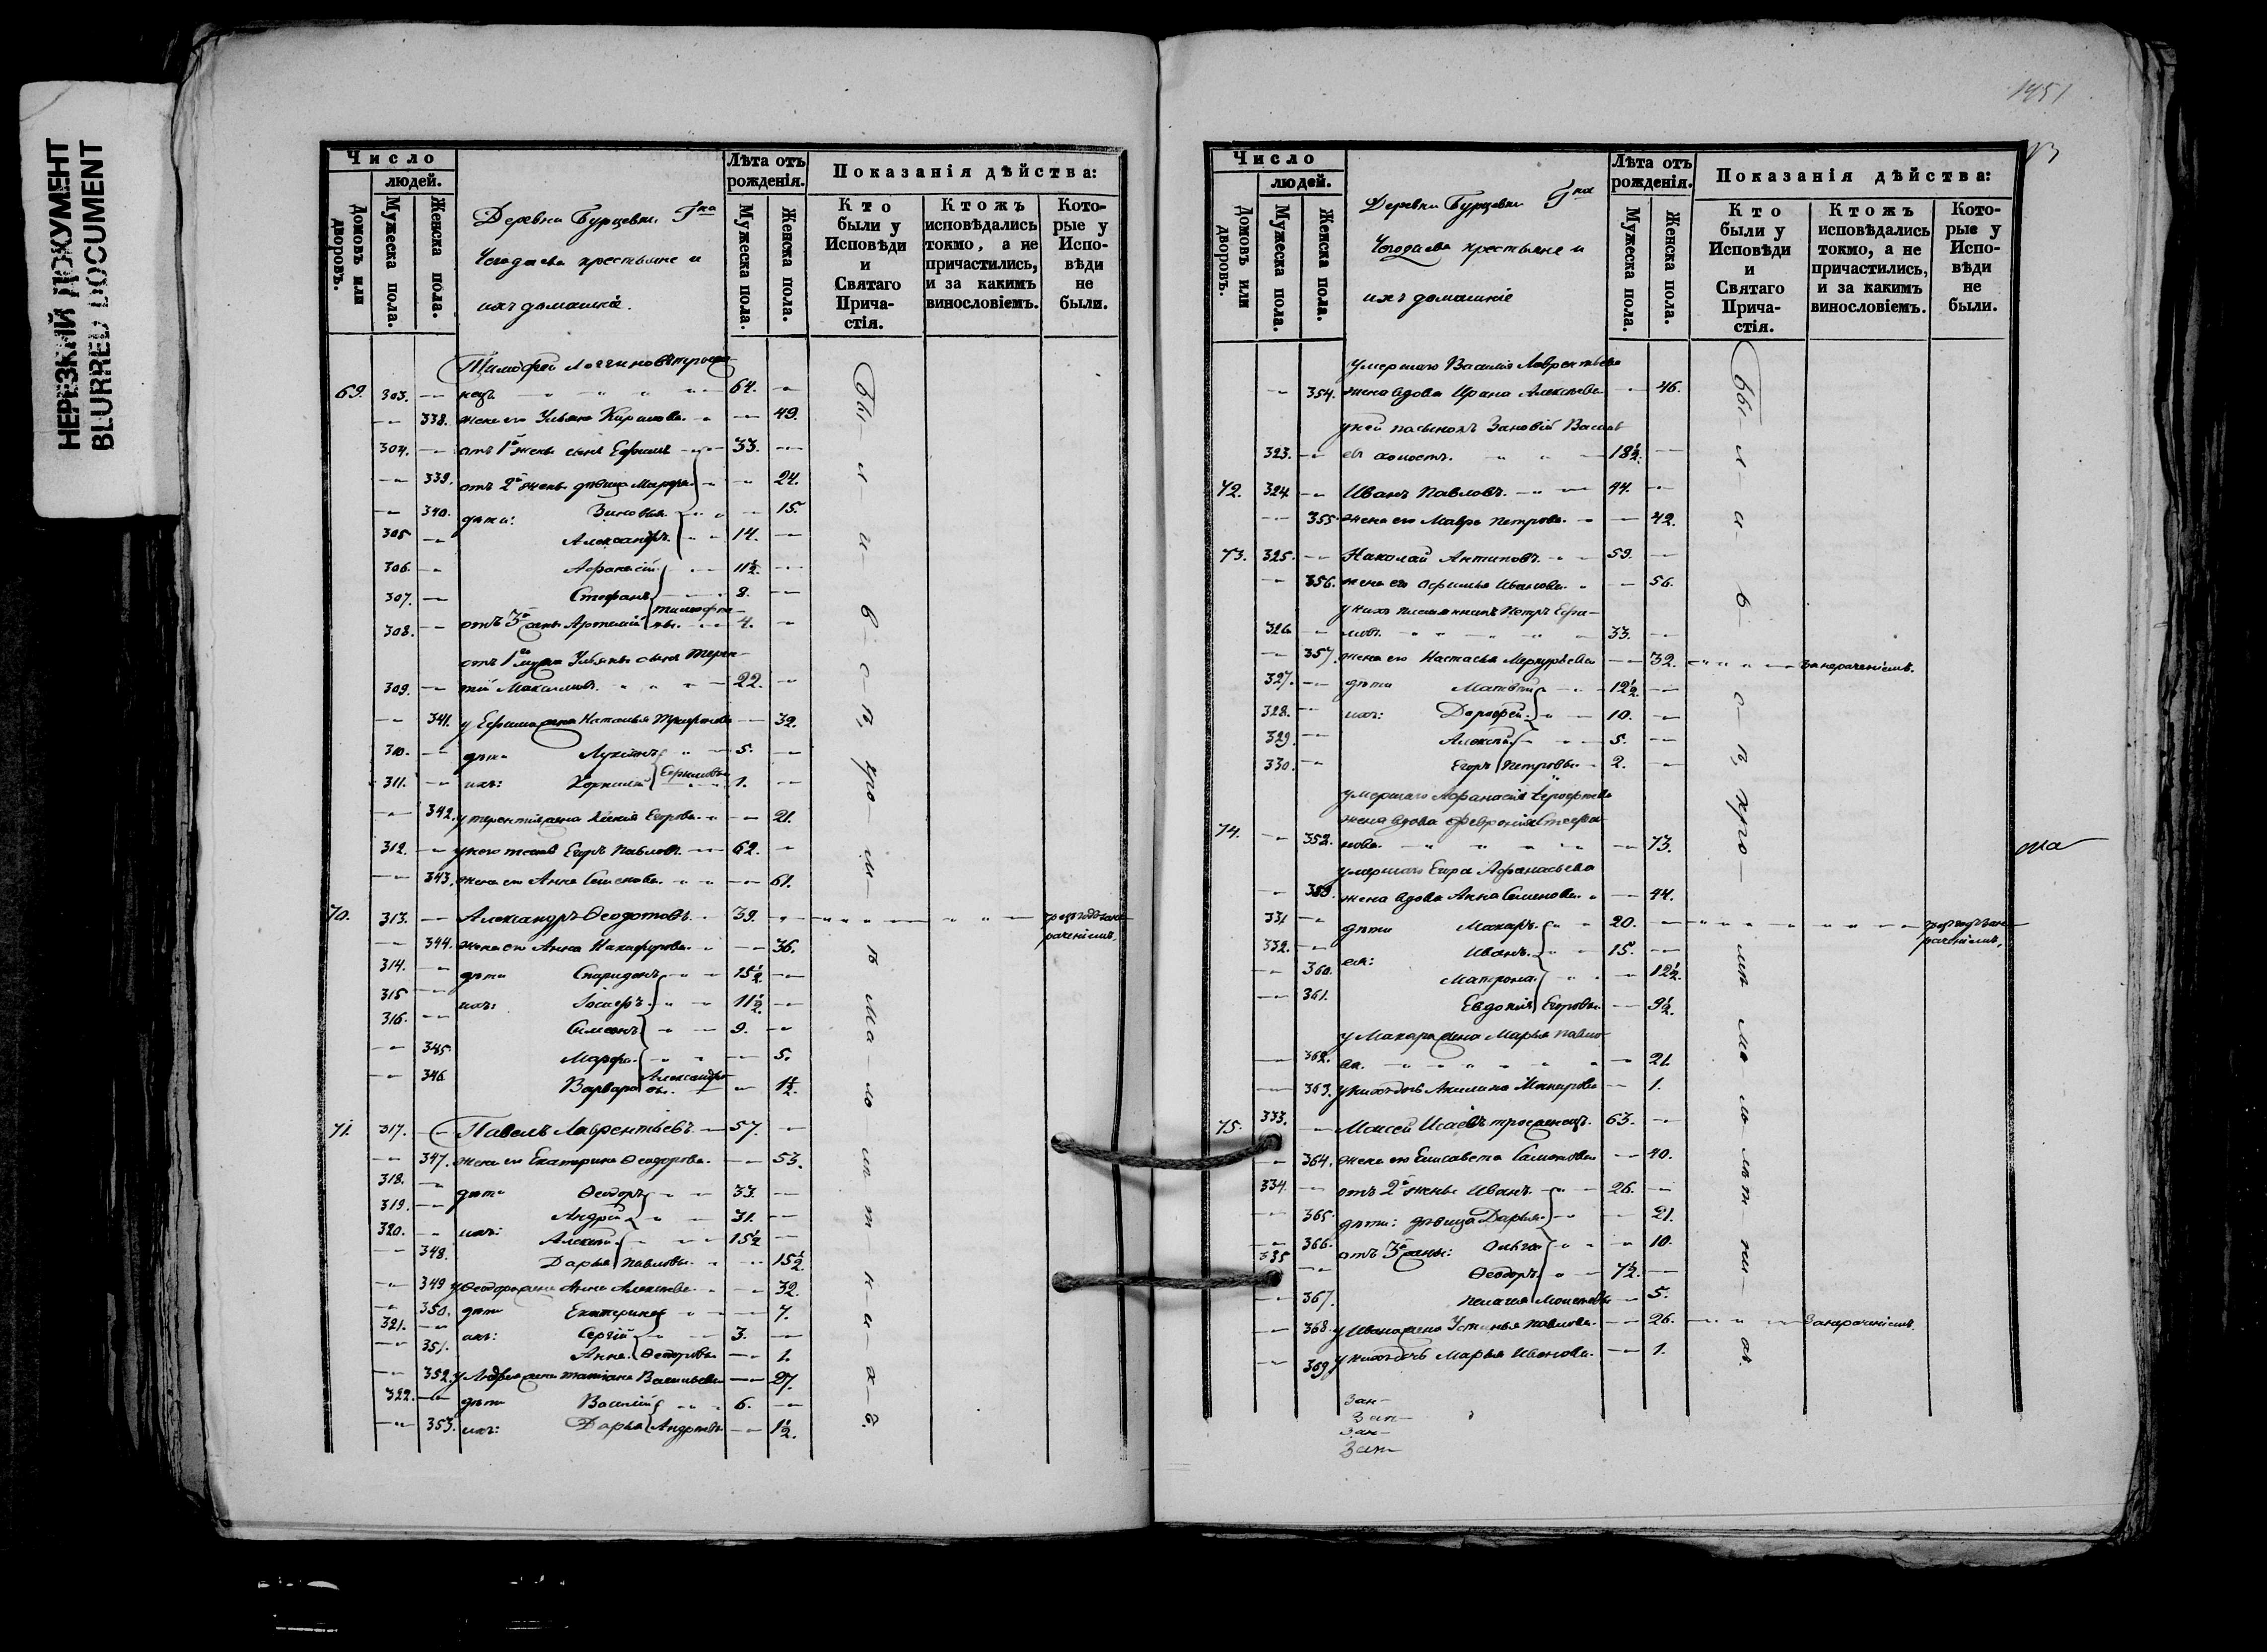 НЕРЕЗКИЙ ДОКУМЕНТ
BLURRED DOCUMENT
Число
людей.
Домовъ или дворовъ.
Мужеска пола.
Женска пола.
Деревни Бурцевки Гна
крестьяне и
ихъ домашніе.
Лѣта отъ рожденія.
Мужеска пола.
Женска пола.
Показанія дѣйства:
Кто были у Исповѣди и Святаго Причастія.
Ктожъ исповѣдались токмо, а не причастились, и за какимъ винословіемъ.
Которые у Исповѣди не были.
Тимофей Логгиновъ троеже-
69. 303. нецъ 64.
338. жена его Ульяна Кирилова 49.
304. отъ 1й жены сынъ Ефимъ 33.
339. отъ 2й жены дѣвица Марфа 24.
340. дѣти: Зиновья 15.
305 Александръ 14.
306. Афанасій 11½.
307. Стефанъ 8.
308. отъ 3й жены Артемій Тимофеевы 4.
отъ 1го мужа Ульяны сынъ Терен-
309. тій Максимовъ 22.
341. у Ефима жена Наталья 32.
310. дѣти Лукіянъ 5.
311. ихъ: Корнилій Ефимовы 1.
342. у Терентія жена Егорова 21.
312. у него тесть Егоръ Павловъ 62.
343. жена его Анна Семенова 61.
70. 313. Александръ Ѳеодотовъ 39.
344. жена его Анна Никифорова 36.
314. дѣти Спиридонъ 15½
315 ихъ: Іосифъ 11½.
316. Симеонъ 9.
345. Марфа 5.
346. Варвара Александровы 1½.
71. 317. Павелъ Лаврентьевъ 57.
347. жена его Екатерина Ѳеодорова 53.
318. дѣти Ѳеодоръ 33.
319. Андрей 31.
320. ихъ: Алексѣй 15½
348. Дарья Павловы 15½.
349 у Ѳеодора жена Анна Алексѣева 32.
350. дѣти Екатерина 7.
321. ихъ: Сергій 3.
351. Анна Ѳеодоровы 1.
352. у Андрея жена Татіана Васильева 27.
322. дѣти Василій 6.
353. ихъ: Дарья Андреевы 1½.
Были и въ про
1451
Число
людей.
Домовъ или дворовъ.
Мужеска пола.
Женска пола.
Деревни Бурцевки Гна
крестьяне и
ихъ домашніе
Лѣта отъ рожденія.
Мужеска пола.
Женска пола.
Показанія дѣйства:
Кто были у Исповѣди и Святаго Причастія.
Ктожъ исповѣдались токмо, а не причастились, и за какимъ винословіемъ.
Которые у Исповѣди не были.
умершаго Василія Лаврентьева
354. жена вдова Ирина Алексѣева 46.
у ней пасынокъ Зиновій Василь
323. евъ холостъ. 18½.
72. 324 Иванъ Павловъ 44.
355. жена его Мавра Петрова 42.
73. 325. Николай Антиповъ 59.
356. жена его Афимья Иванова 56.
у нихъ племянникъ Петръ Ефи-
326. мовъ. 33.
357. жена его Настасья Меркурьева 32. за нераченіемъ.
327. дѣти Матвѣй 12½.
328. ихъ: Дорофей 10.
329. Алексѣй 5.
330. Егоръ Петровы 2.
умершаго Афанасія
жена вдова Февронія Стефа-
74. 358. нова. 73.
умершаго Егора Афанасьева
359. жена вдова Анна Семенова 44.
331 дѣти Макаръ 20.
332. ея: Иванъ 15.
360. Матрона 12½.
361. Евдокія Егоровы 9½.
у Макара жена Марья Павло
362. ва. 21.
363. у нихъ дочь Акилина Макарова 1.
75. 333. Моисей Исаевъ троеженецъ. 63.
364. жена его Елисавета Самойлова 40.
334. отъ 2й жены Иванъ 26.
365. дѣти: дѣвица Дарья 21.
366. отъ 3й жены: Ольга 10.
335 Ѳеодоръ 7½.
367. Пелагія Моисеевы 5.
368. у Ивана жена Устинья Павлова 26. за нераченіемъ.
369 у нихъ дочь Марья Иванова 1.
Зан-
Зап-
Зан-
Зап-